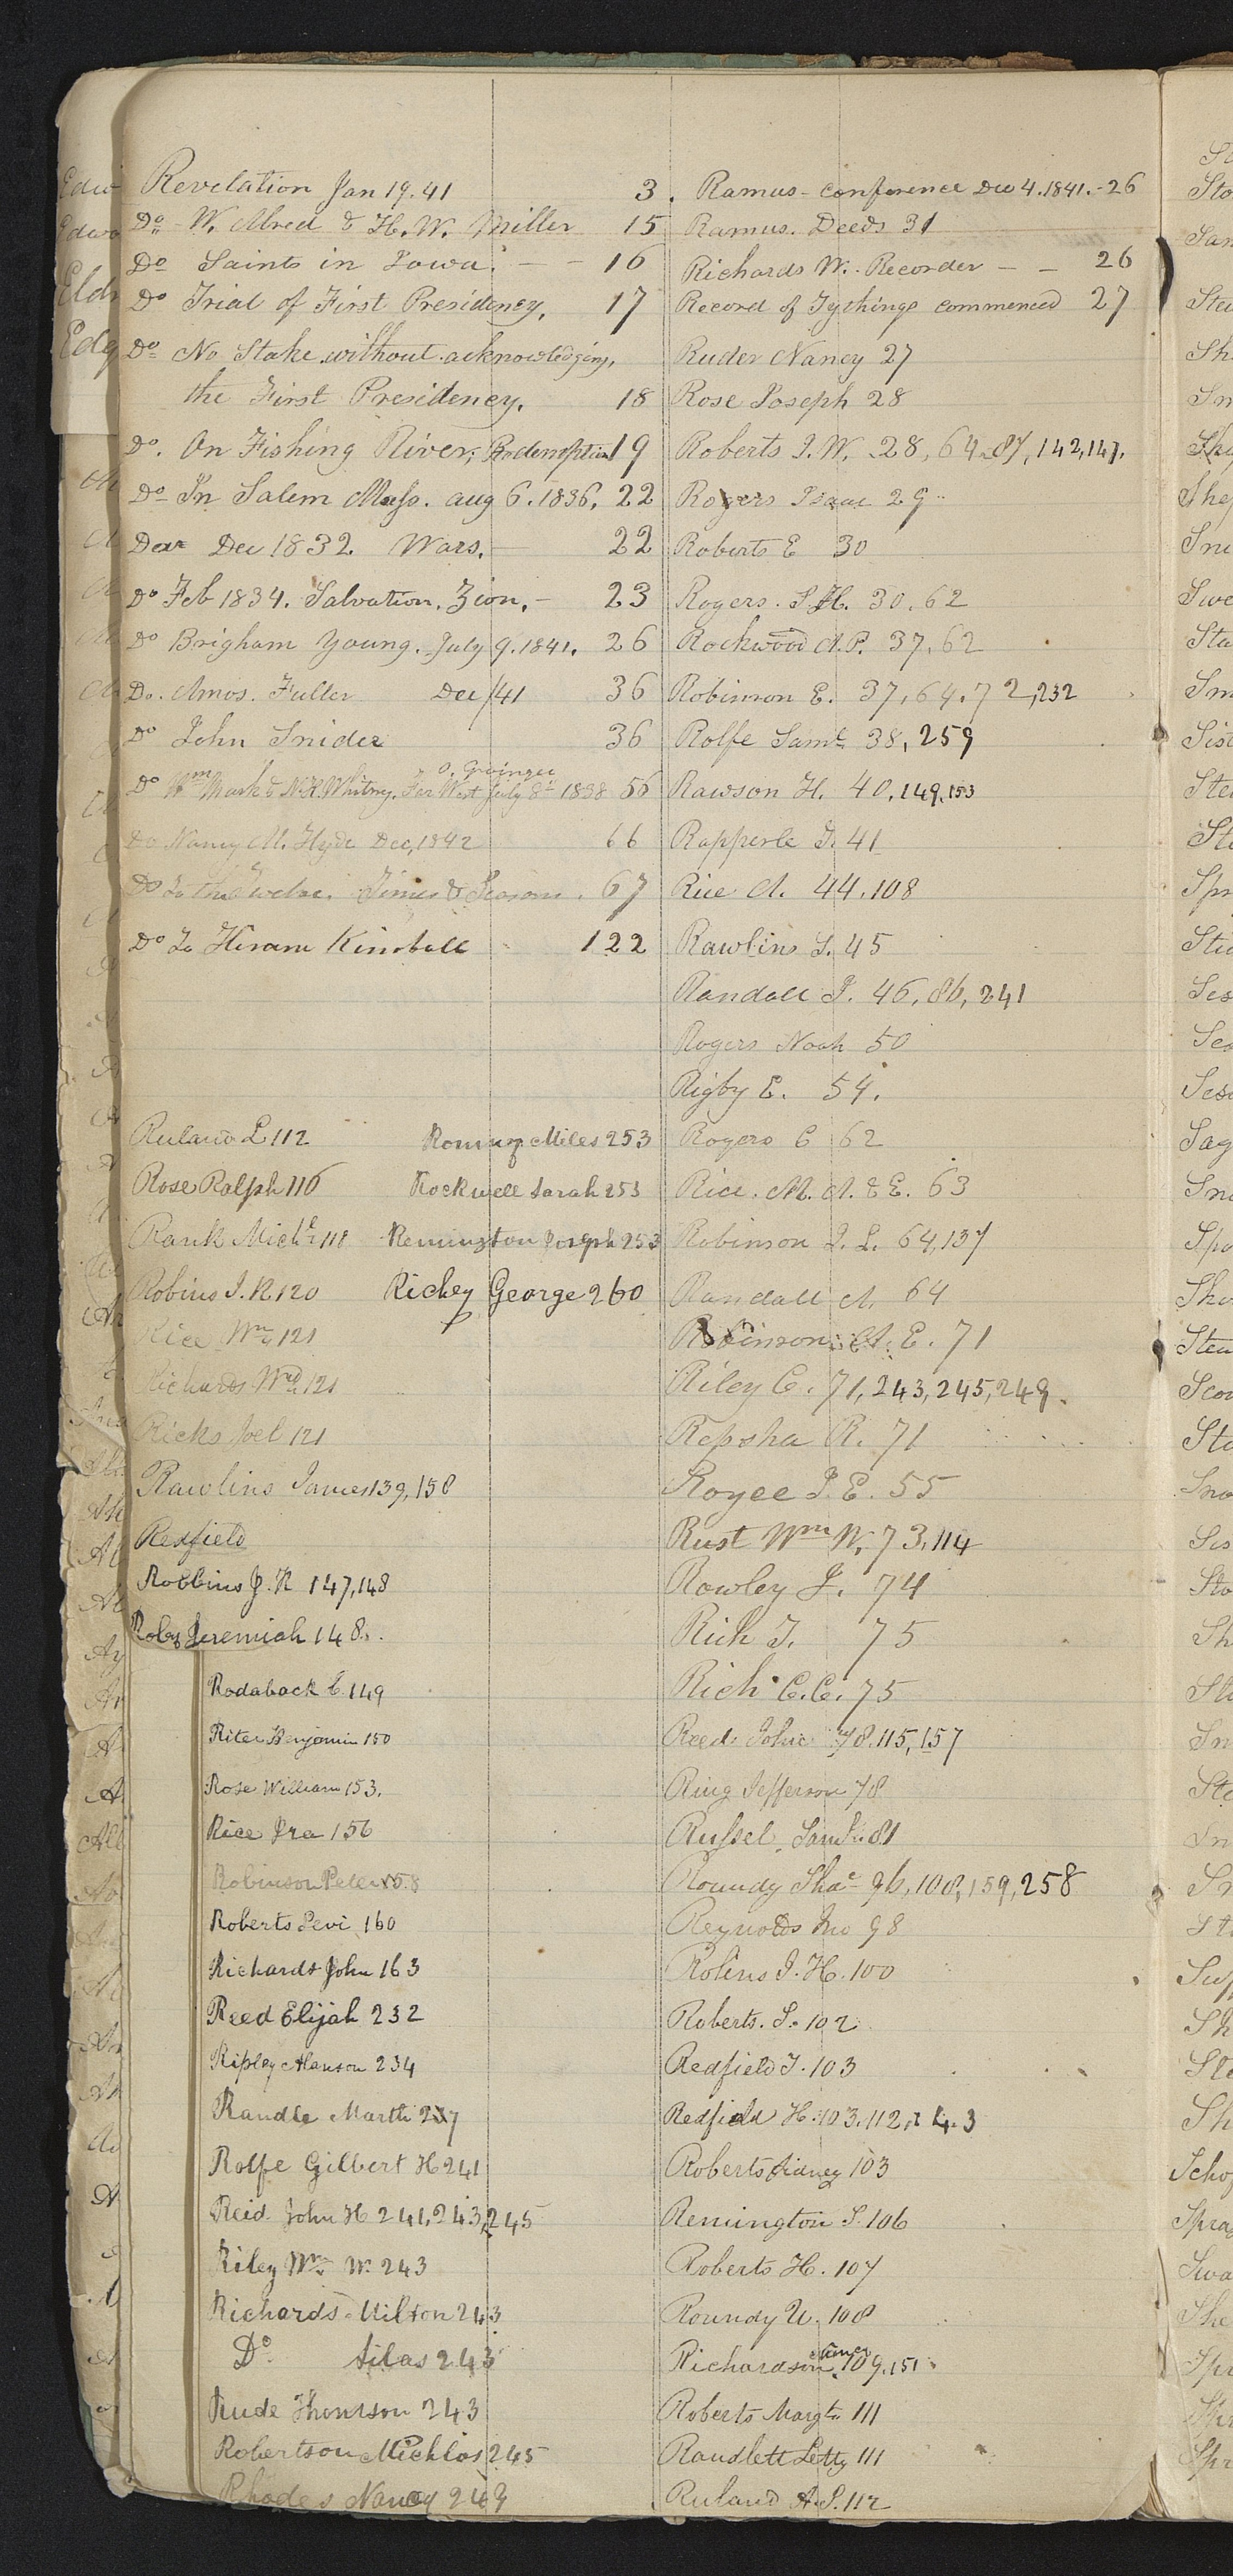 Revelation Jan 19. 41 3.
Do W. Alred & H. W. Miller 15
Do Saints in Iowa. — — 16
Do Trial of First Presidency, 17
Do No Stake without acknowledging,
the First Presidency. 18
Do. On Fishing River, Redemption 19
Do In Salem Mass. aug 6. 1836. 22
Dec 1832. Wars. 22
Do Feb 1834. Salvation. Zion. - 23
Do Brigham Young. July 9. 1841. 26
Do. Amos. Fuller Dec/41 36
Do John Snider 36
O. Grainger
Do Wm Marks & N.K. Whitney. Far West July 8th 1838 56
Do Nancy M. Hyde Dec, 1842 66
Do To the Twelve. Times & Seasons. 67
Do To Hiram Kimball 122
Ruland L 112
Rose Ralph 116
Rank Michl 118
Robins J. R 120
Rice Wm 121
Richards Wd 121
Ricks Joel 121
Rawlins James 139, 158
Redfield
Robbins J. R 147, 148
Roby Jeremiah 148.
Romney Miles 253
Rockwell Sarah 253
Remington Joseph 253
Richey George 260
Rodaback C. 149
Riter Benjamin 150
Rose William 153.
Rice Ira 156
Robinson Peter 158
Roberts Levi 160
Richards John 163
Reed Elijah 232
Ripley Alanson 234
Randle Marth 237
Rolfe Gilbert H 241
Reid John H 241, 243, 245
Riley Wm W. 243
Richards Milton 243
Do. Silas 243
Rude Thomson 243
Robertson 245
Rhodes Nancy 249
Ramus - Conference Dec 4. 1841. - 26
Ramus. Deeds 31
Richards W. Recorder — — 26
Record of Tythings commenced 27
Ruder Nancy 27
Rose Joseph 28
Roberts J. W. 28, 64, 87, 142, 147.
Rogers Isaac 29
Roberts E 30
Rogers. S. H. 30, 62
Rockwood A.P. 37, 62
Robinson E. 37, 64, 72, 232
Rolfe Saml 38, 259
Rawson H. 40, 149, 153
Rapperle T. 41
Rice A. 44. 108
Rawlins J. 45
Randall J. 46, 86, 241
Rogers Noah 50
Rigby E. 54.
Rogers C 62
Rice. M. A. & E. 63
Robinson J. L. 64, 137
Randall A 64
Robinson A. E. 71
Riley C. 71, 243, 245, 249.
Repsha R. 71
Royce J. E. 55
Rust Wm W. 73, 114
Rowley J. 74
Rich T. 75
Rich C.C. 75
Reed John 78. 115, 157
Ring Jefferson 78
Russel Saml 81
Roundy Shae 96, 108, 159, 258
Reynolds Jno 98
Rolins J. H. 100
Roberts. S. 102
Redfield T. 103
Redfield H. 103. 112, 143
Roberts Sidney 103
Remington S. 106
Roberts H. 107
Roundy U. 108
Richardson 109, 151
Roberts Margt 111
Randlett Letty 111
Ruland A. S. 112